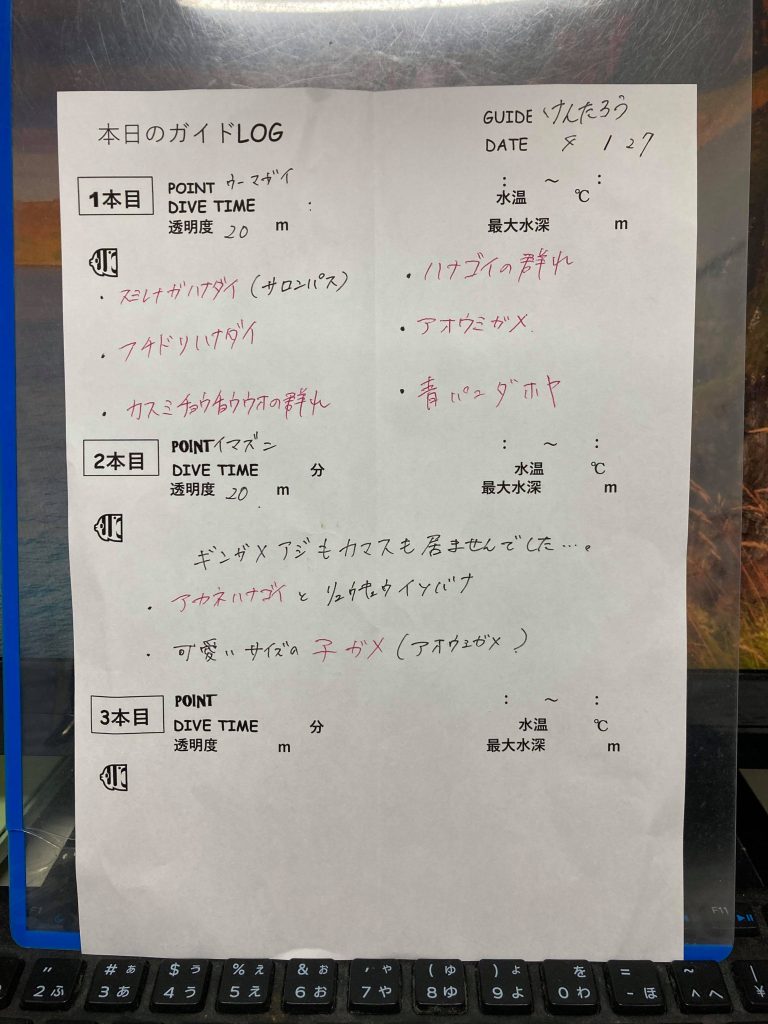 本日のガイドLOG
GUIDE けんたろう
DATE 4 / 27
1本目
POINT ウーマガイ
: ～ :
DIVE TIME :
水温 ℃
透明度 20 m
最大水深 m
・スミレナガハナダイ (サロンパス)
・ハナゴイの群れ
・フチドリハナダイ
・アオウミガメ
・カスミチョウチョウウオの群れ
・青パンダホヤ
2本目
POINT イマズン
: ～ :
DIVE TIME 分
水温 ℃
透明度 20 m
最大水深 m
ギンガメアジもカマスも居ませんでした…。
・アカネハナゴイとリュウキュウイソバナ
・可愛いサイズの子ガメ (アオウミガメ)
3本目
POINT
: ～ :
DIVE TIME 分
水温 ℃
透明度 m
最大水深 m
F1
F11
" 2 ふ
# ぁ 3 あ
$ ぅ 4 う
% ぇ 5 え
& ぉ 6 お
' ゃ 7 や
( ゅ 8 ゆ
) ょ 9 よ
を 0 わ
= - ほ
~ ^ へ
| ¥